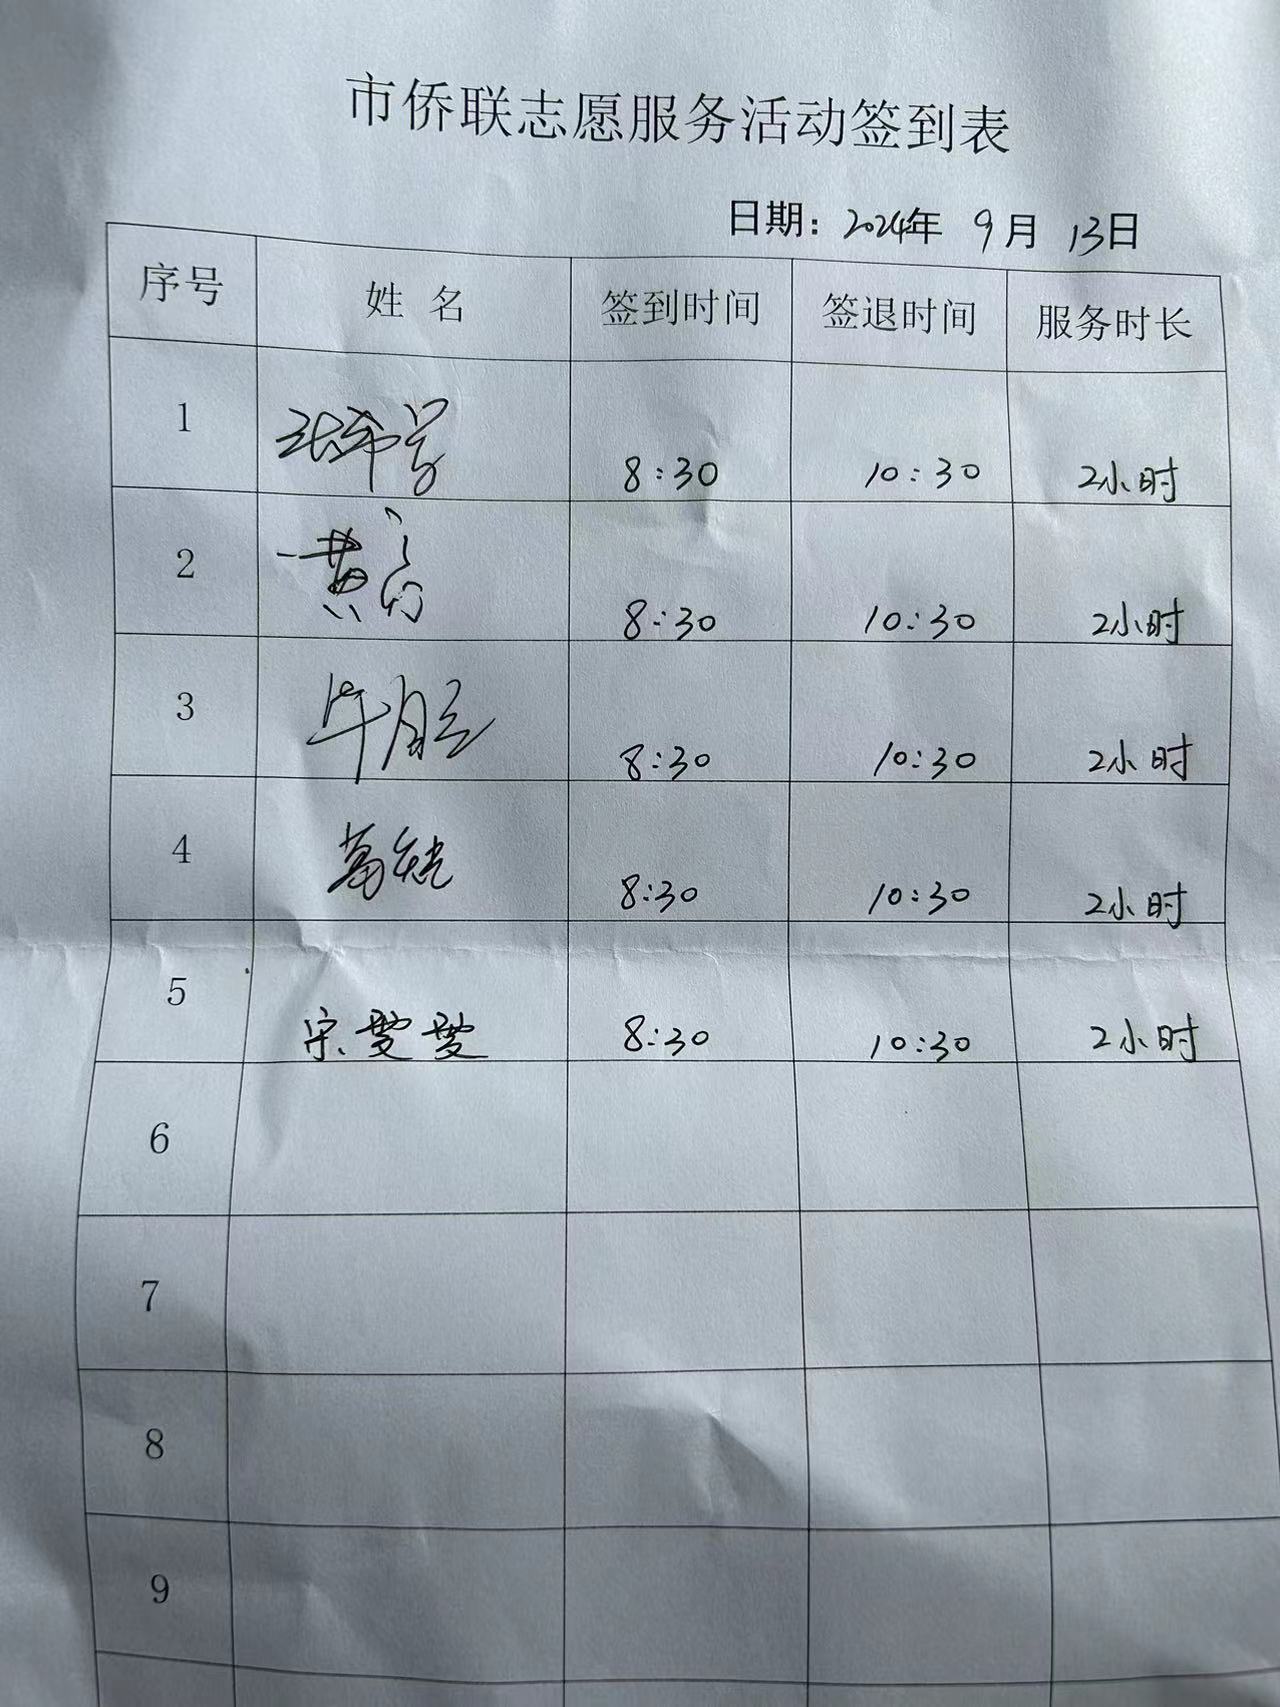 市侨联志愿服务活动签到表
日期：2024年 9月 13日
序号 姓 名 签到时间 签退时间 服务时长
1 8:30 10:30 2小时
2 黄 8:30 10:30 2小时
3 8:30 10:30 2小时
4 8:30 10:30 2小时
5 宋雯雯 8:30 10:30 2小时
6
7
8
9